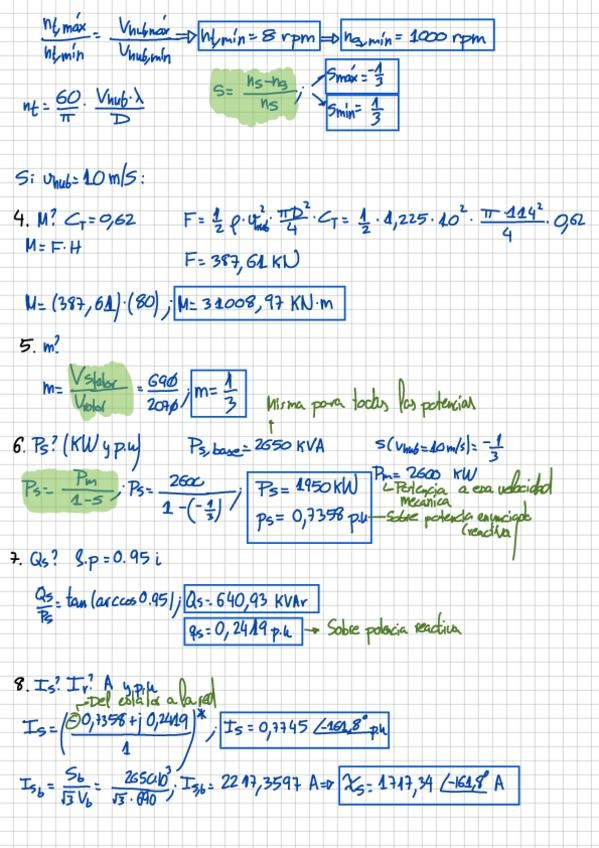 nt,máx/nt,mín = Vhub,máx/Vhub,mín ⇒ nt,mín = 8 rpm ⇒ ng,mín = 1000 rpm
nt = 60/π · Vhub·λ/D
S = (ns-ng)/ns ; Smáx = -1/3
Smín = 1/3
Si vhub = 10 m/s:
4. M? CT = 0,62 F = 1/2 ρ·v²hub · πD²/4 · CT = 1/2 · 1,225 · 10² · π·114²/4 · 0,62
M = F·H
F = 387,61 KN
M = (387,61)·(80) ; M = 31008,97 KN·m
5. m?
m = Vstator/Vrotor = 690/2070 ; m = 1/3
Misma para todas las potencias
6. Ps? (KW y p.u) Ps,base = 2650 KVA s(vhub=10m/s) = -1/3
Ps = Pm/(1-s) ; Ps = 2600/(1-(-1/3)) ; Ps = 1950 KW
Pm = 2600 KW
Potencia a esa velocidad mecánica
ps = 0,7358 p.u
Sobre potencia
(reactiva
7. Qs? f.p = 0.95 i
Qs/Ps = tan(arccos 0.95) ; Qs = 640,93 KVAr
qs = 0,2419 p.u → Sobre potencia reactiva
8. Is? Ir? A y p.u
Del estátor a la red
Is = ((-0,7358 + j 0,2419)/1)* ; Is = 0,7745 ∠-161,8° p.u
Isb = Sb/(√3 Vb) = 2650·10³/(√3·690) ; Isb = 2217,3597 A ⇒ Is = 1717,34 ∠-161,8° A